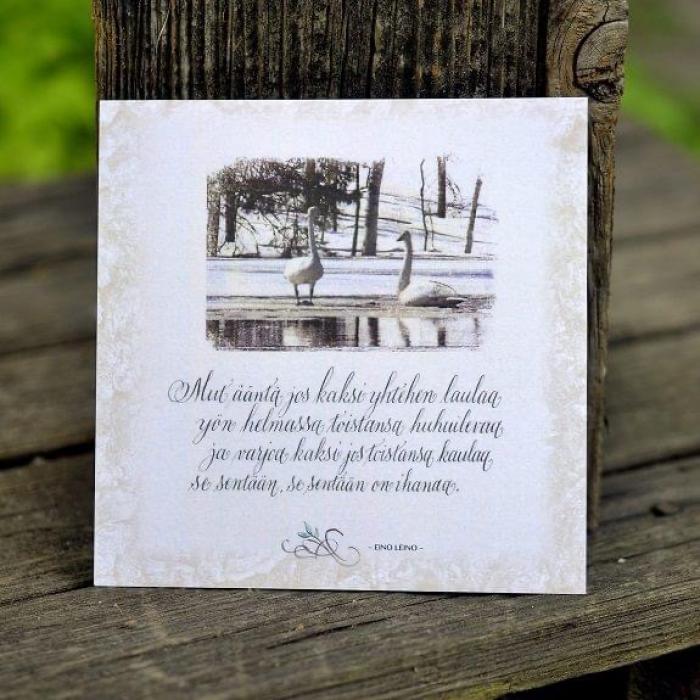 Mut ääntä jos kaksi yhtehen laulaa
yön helmassa toistansa huhuilevaa
ja varjoa kaksi jos toistansa kaulaa
se sentään, se sentään on ihanaa.
- EINO LEINO -